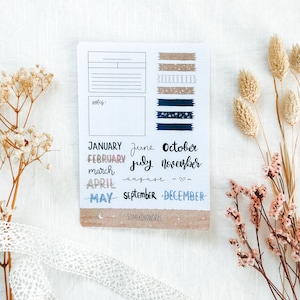 notes:
JANUARY June October
FEBRUARY July November
march august
APRIL
MAY September DECEMBER